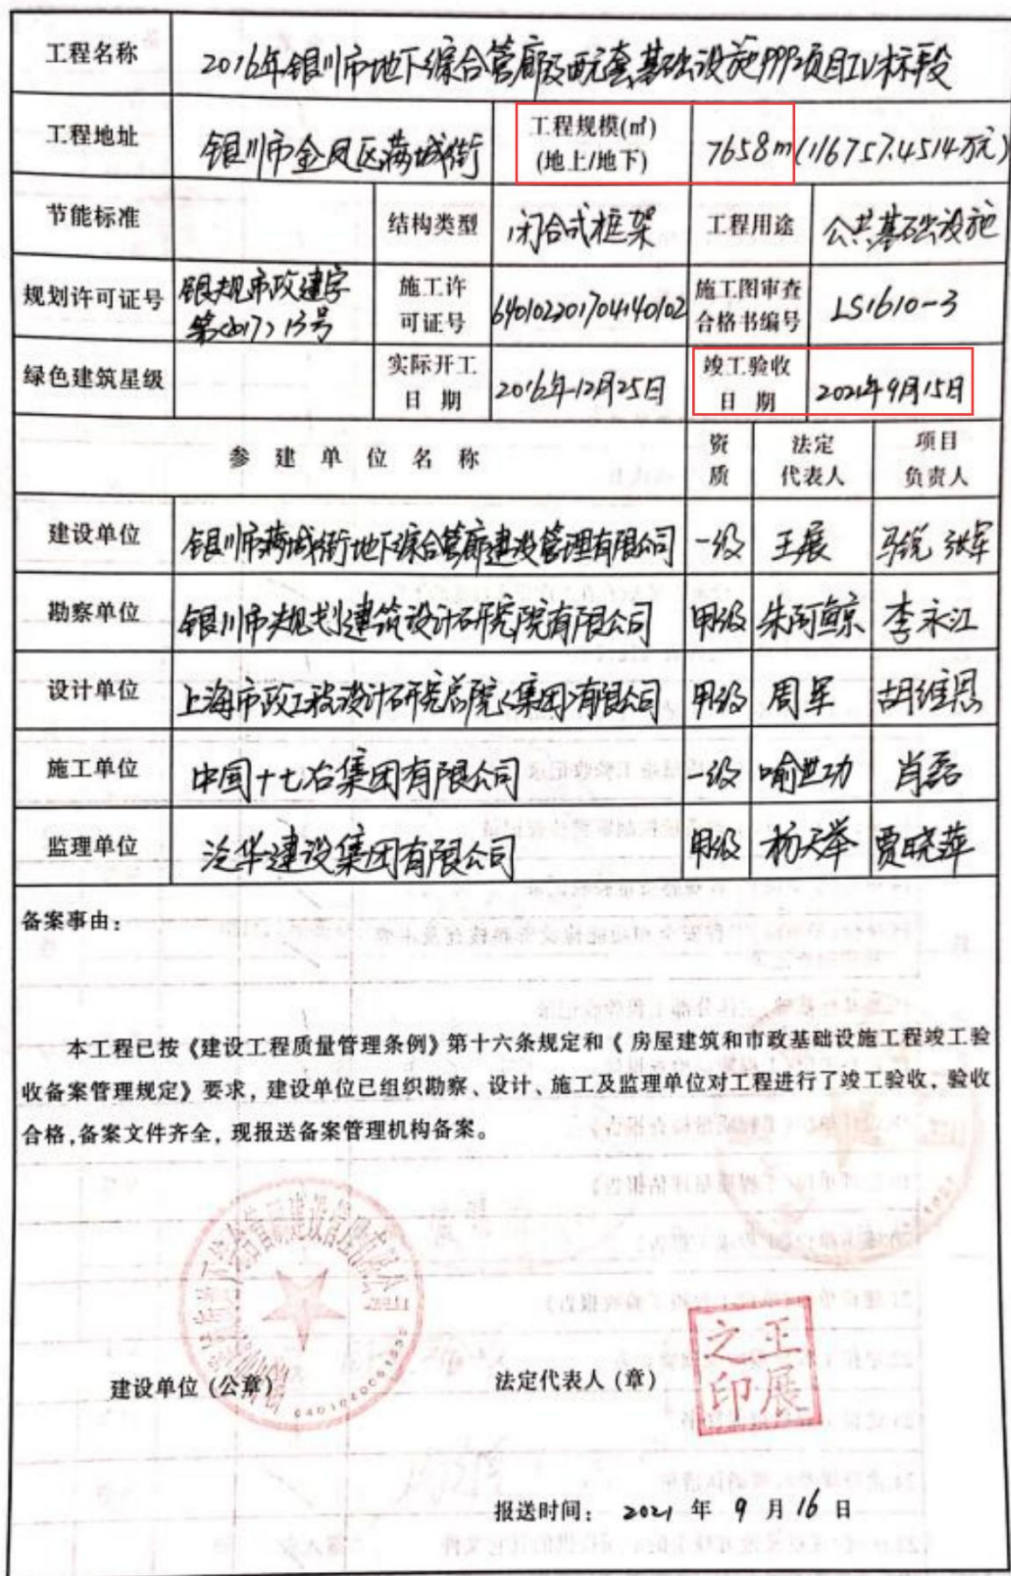 工程名称 2016年银川市地下综合管廊及配套基础设施PPP项目IV标段
工程地址 银川市金凤区满城街 工程规模(㎡) 7658m(116757.4514万元)
(地上/地下)
节能标准 结构类型 闭合式框架 工程用途 公共基础设施
规划许可证号 银规市政建字 施工许 640102201704140102 施工图审查 LS1610-3
第(2017)13号 可证号 合格书编号
绿色建筑星级 实际开工 2016年12月25日 竣工验收 2021年9月15日
日 期 日 期
参 建 单 位 名 称 资 法定 项目
质 代表人 负责人
建设单位 银川市满城街地下综合管廊建设管理有限公司 一级 王展 马锐 张军
勘察单位 银川市规划建筑设计研究院有限公司 甲级 朱阿鲸 李永江
设计单位 上海市政工程设计研究总院(集团)有限公司 甲级 周军 胡维恩
施工单位 中国十七冶集团有限公司 一级 喻世功 肖磊
监理单位 泛华建设集团有限公司 甲级 杨天举 贾晓萍
备案事由：
本工程已按《建设工程质量管理条例》第十六条规定和《 房屋建筑和市政基础设施工程竣工验
收备案管理规定》要求，建设单位已组织勘察、设计、施工及监理单位对工程进行了竣工验收，验收
合格,备案文件齐全，现报送备案管理机构备案。
建设单位 (公章) 法定代表人 (章)
王展
之印
报送时间： 2021 年 9 月 16 日